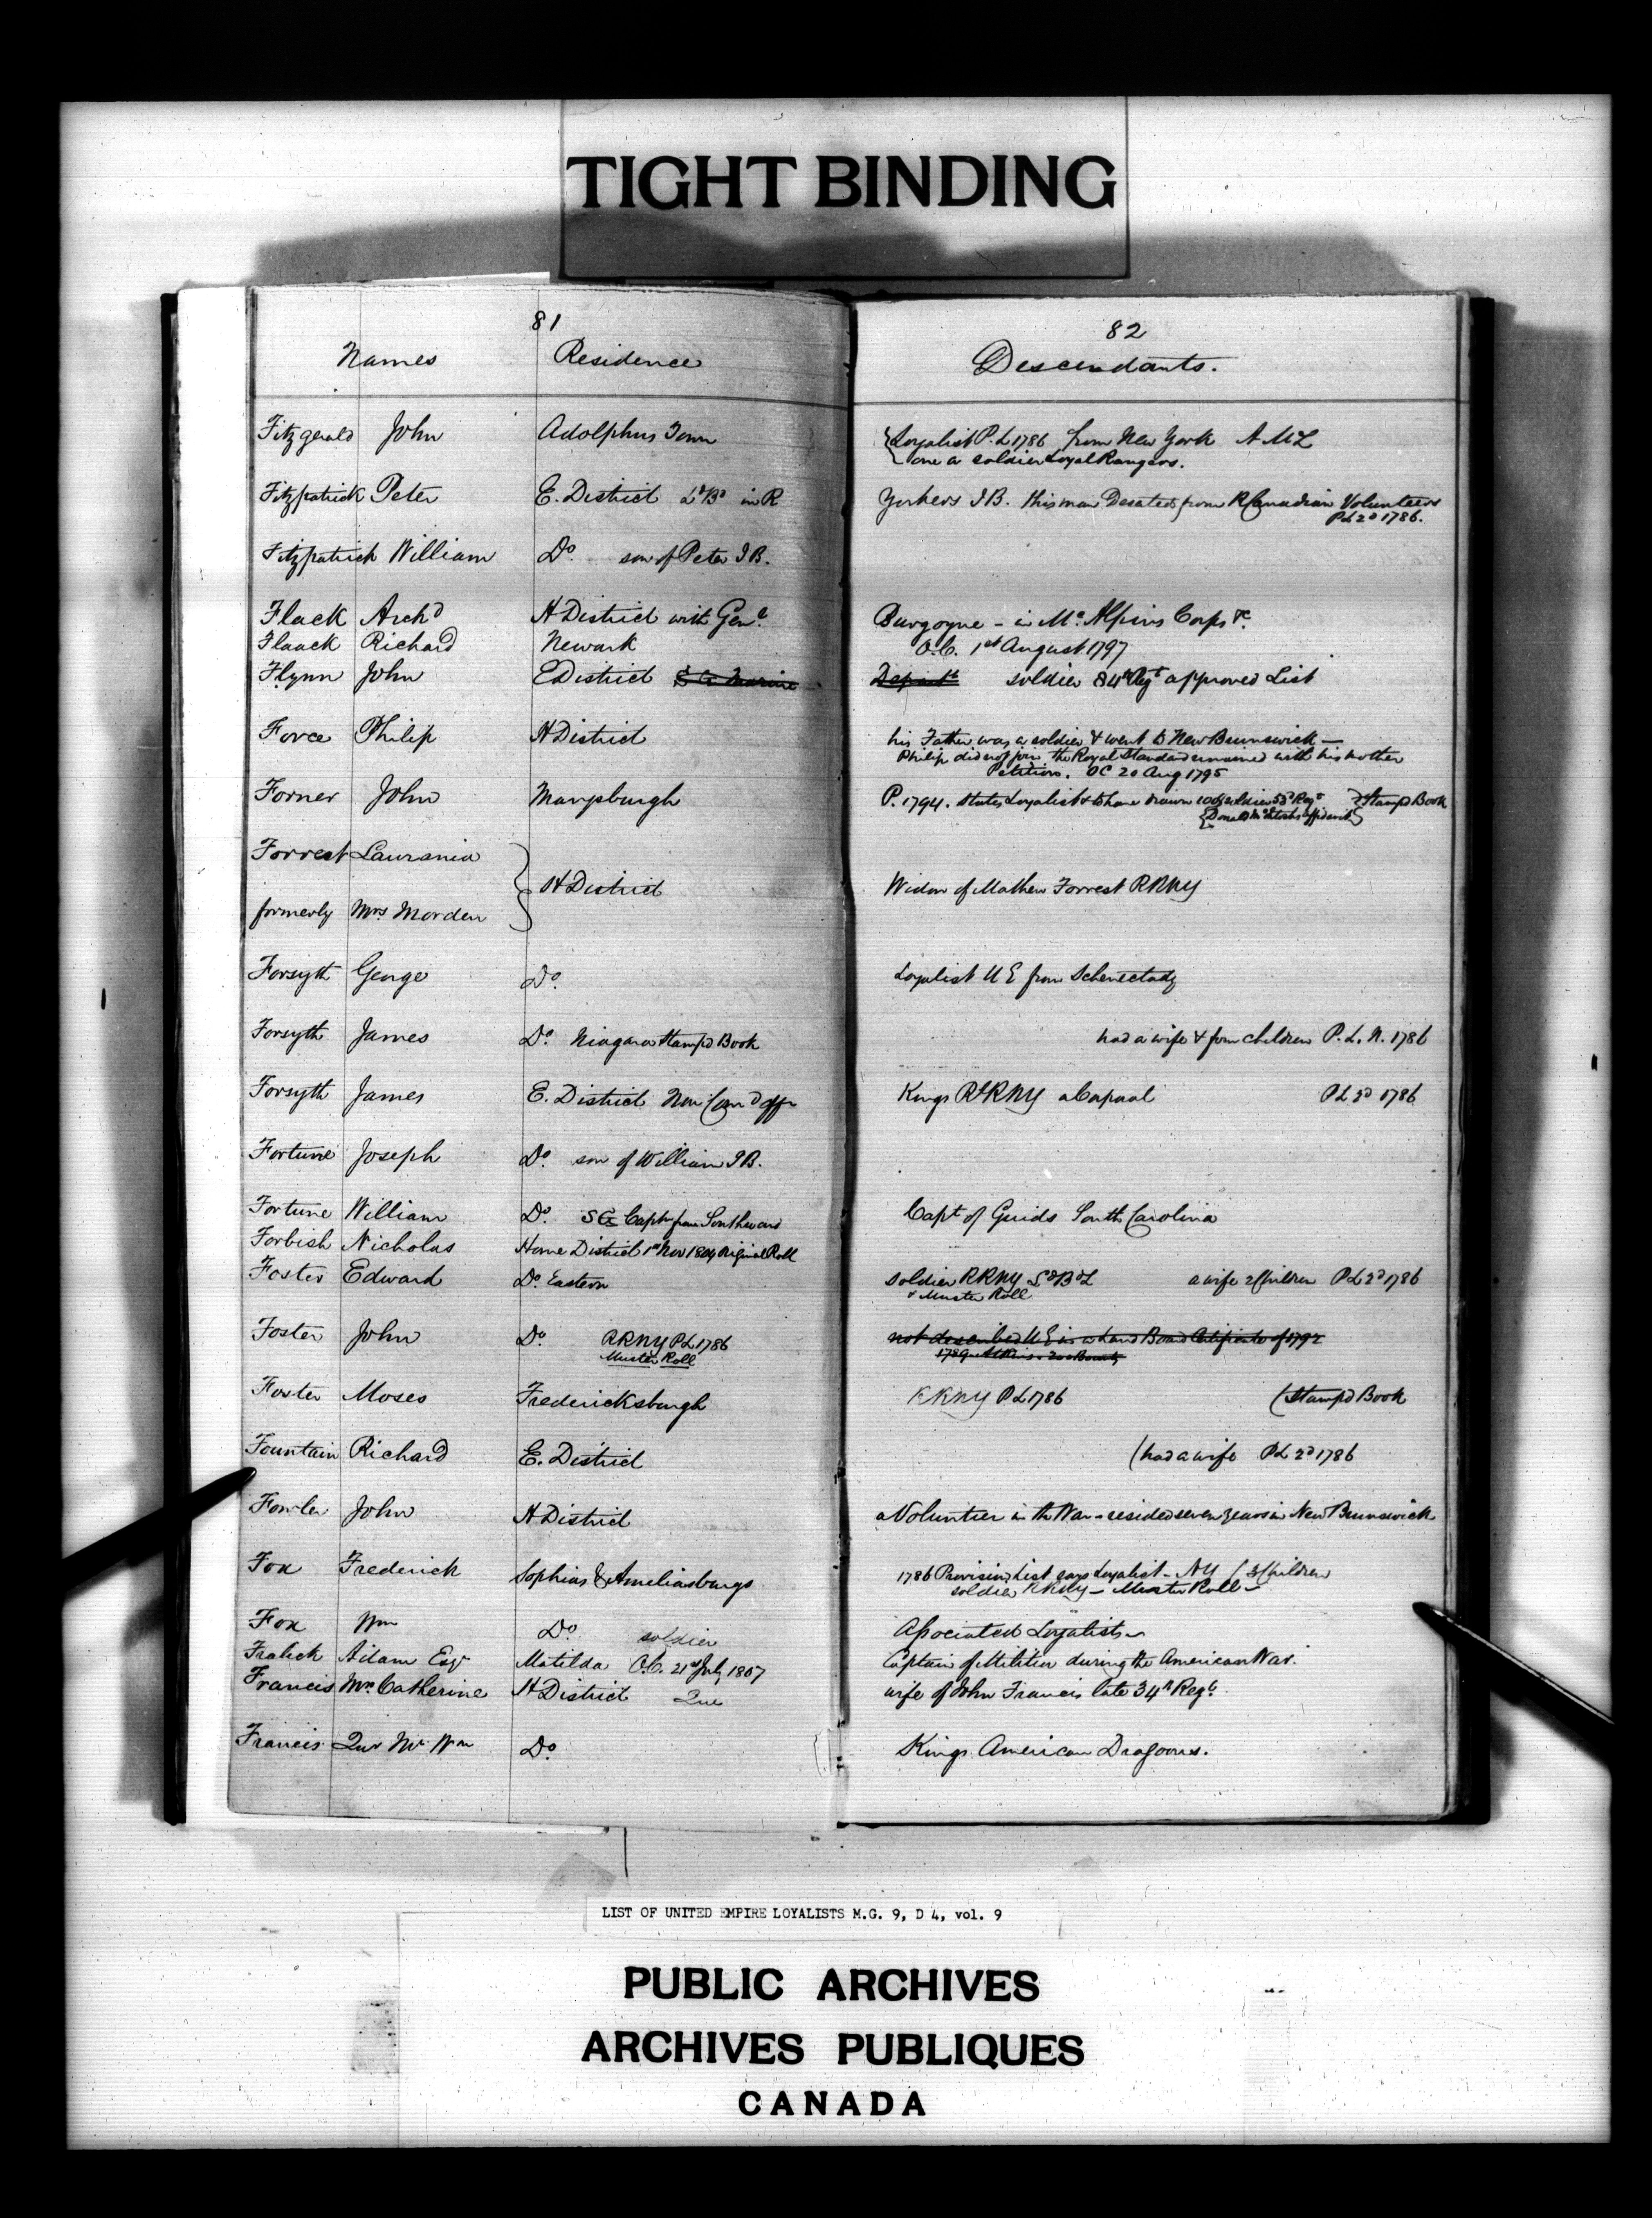 TIGHT BINDING
81
Names Residence
82
Descendants.
Fitzgerald John Adolphus Town {Loyalist P.L 1786 from New York A McL
one a soldier Loyal Rangers.
Fitzpatrick Peter E. District L^d B^d in R Yorkers I B. this man Deserted from R Canadian Volunteers
P L 2^d 1786.
Fitzpatrick William D^o. son of Peter I B.
Flack Arch^d H District with Gen^l. Burgoyne - in M^c. Alpins Corps &c.
Flaack Richard Newark O.C. 1^st August 1797
Flynn John E District S G Marine Depart^t soldier 84^th Reg^t approved List
Force Philip H District his Father was a soldier & went to New Brunswick —
Philip did not join the Royal Standard remained with his mother
Petition. OC 20 Aug 1795
Forner John Marysburgh P. 1794. states Loyalist & to have drawn 100 soldier 53^d Reg^t. Stamp^d Book
{Donald M^cIntoshs affidavit}
Forrest Laurania
H District Widow of Mathew Forrest RRNY
formerly Mrs Morden
Forsyth George D^o. Loyalist U E from Schenectady
Forsyth James D^o. Niagara Stamp^d Book had a wife & four children P. L. N. 1786
Forsyth James E. District Non Com^d offr Kings R^t RNY a Corporal P L 2^d 1786
Fortune Joseph D^o. son of William I B.
Fortune William D^o. S G Capt^n from Southward Capt^t of Guids South Carolina
Forbish Nicholas Home District 1^st Nov 1804 original Roll
Foster Edward D^o. Eastern soldier RRNY L^d B^d L a wife 2 Children P L 2^d 1786
& Muster Roll
Foster John D^o RRNY PL 1786 not described U E in a Land Board Certificate of 1792
Muster Roll 1789
Foster Moses Fredericksburgh RRNY P L 1786 (Stamp^d Book
Fountain Richard E. District (had a wife P L 2^d 1786
Fowler John H District a Volunteer in the War - resided seven years in New Brunswick
Fox Frederick Sophias & Ameliasburgs 1786 Provision List says Loyalist - NY (3 Children
soldier RRNY - Muster Roll -
Fox Wm D^o. soldier Associated Loyalists
Fralick Adam Esq^r Matilda O.C. 21^st July 1807 Captain of Militia during the American War.
Francis Mrs Catherine H District Que wife of John Francis late 34^th Reg^t.
Francis Qur Mr W^m D^o. Kings American Dragoons.
LIST OF UNITED EMPIRE LOYALISTS M.G. 9, D 4, vol. 9
PUBLIC ARCHIVES
ARCHIVES PUBLIQUES
CANADA